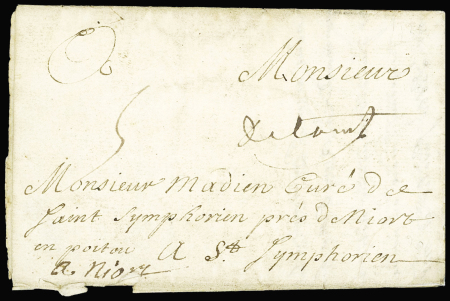 Monsieur
De tours
5
Monsieur Madien Curé de
Saint Symphorien prés de Niort
en poitou A St Symphorien
a Niort